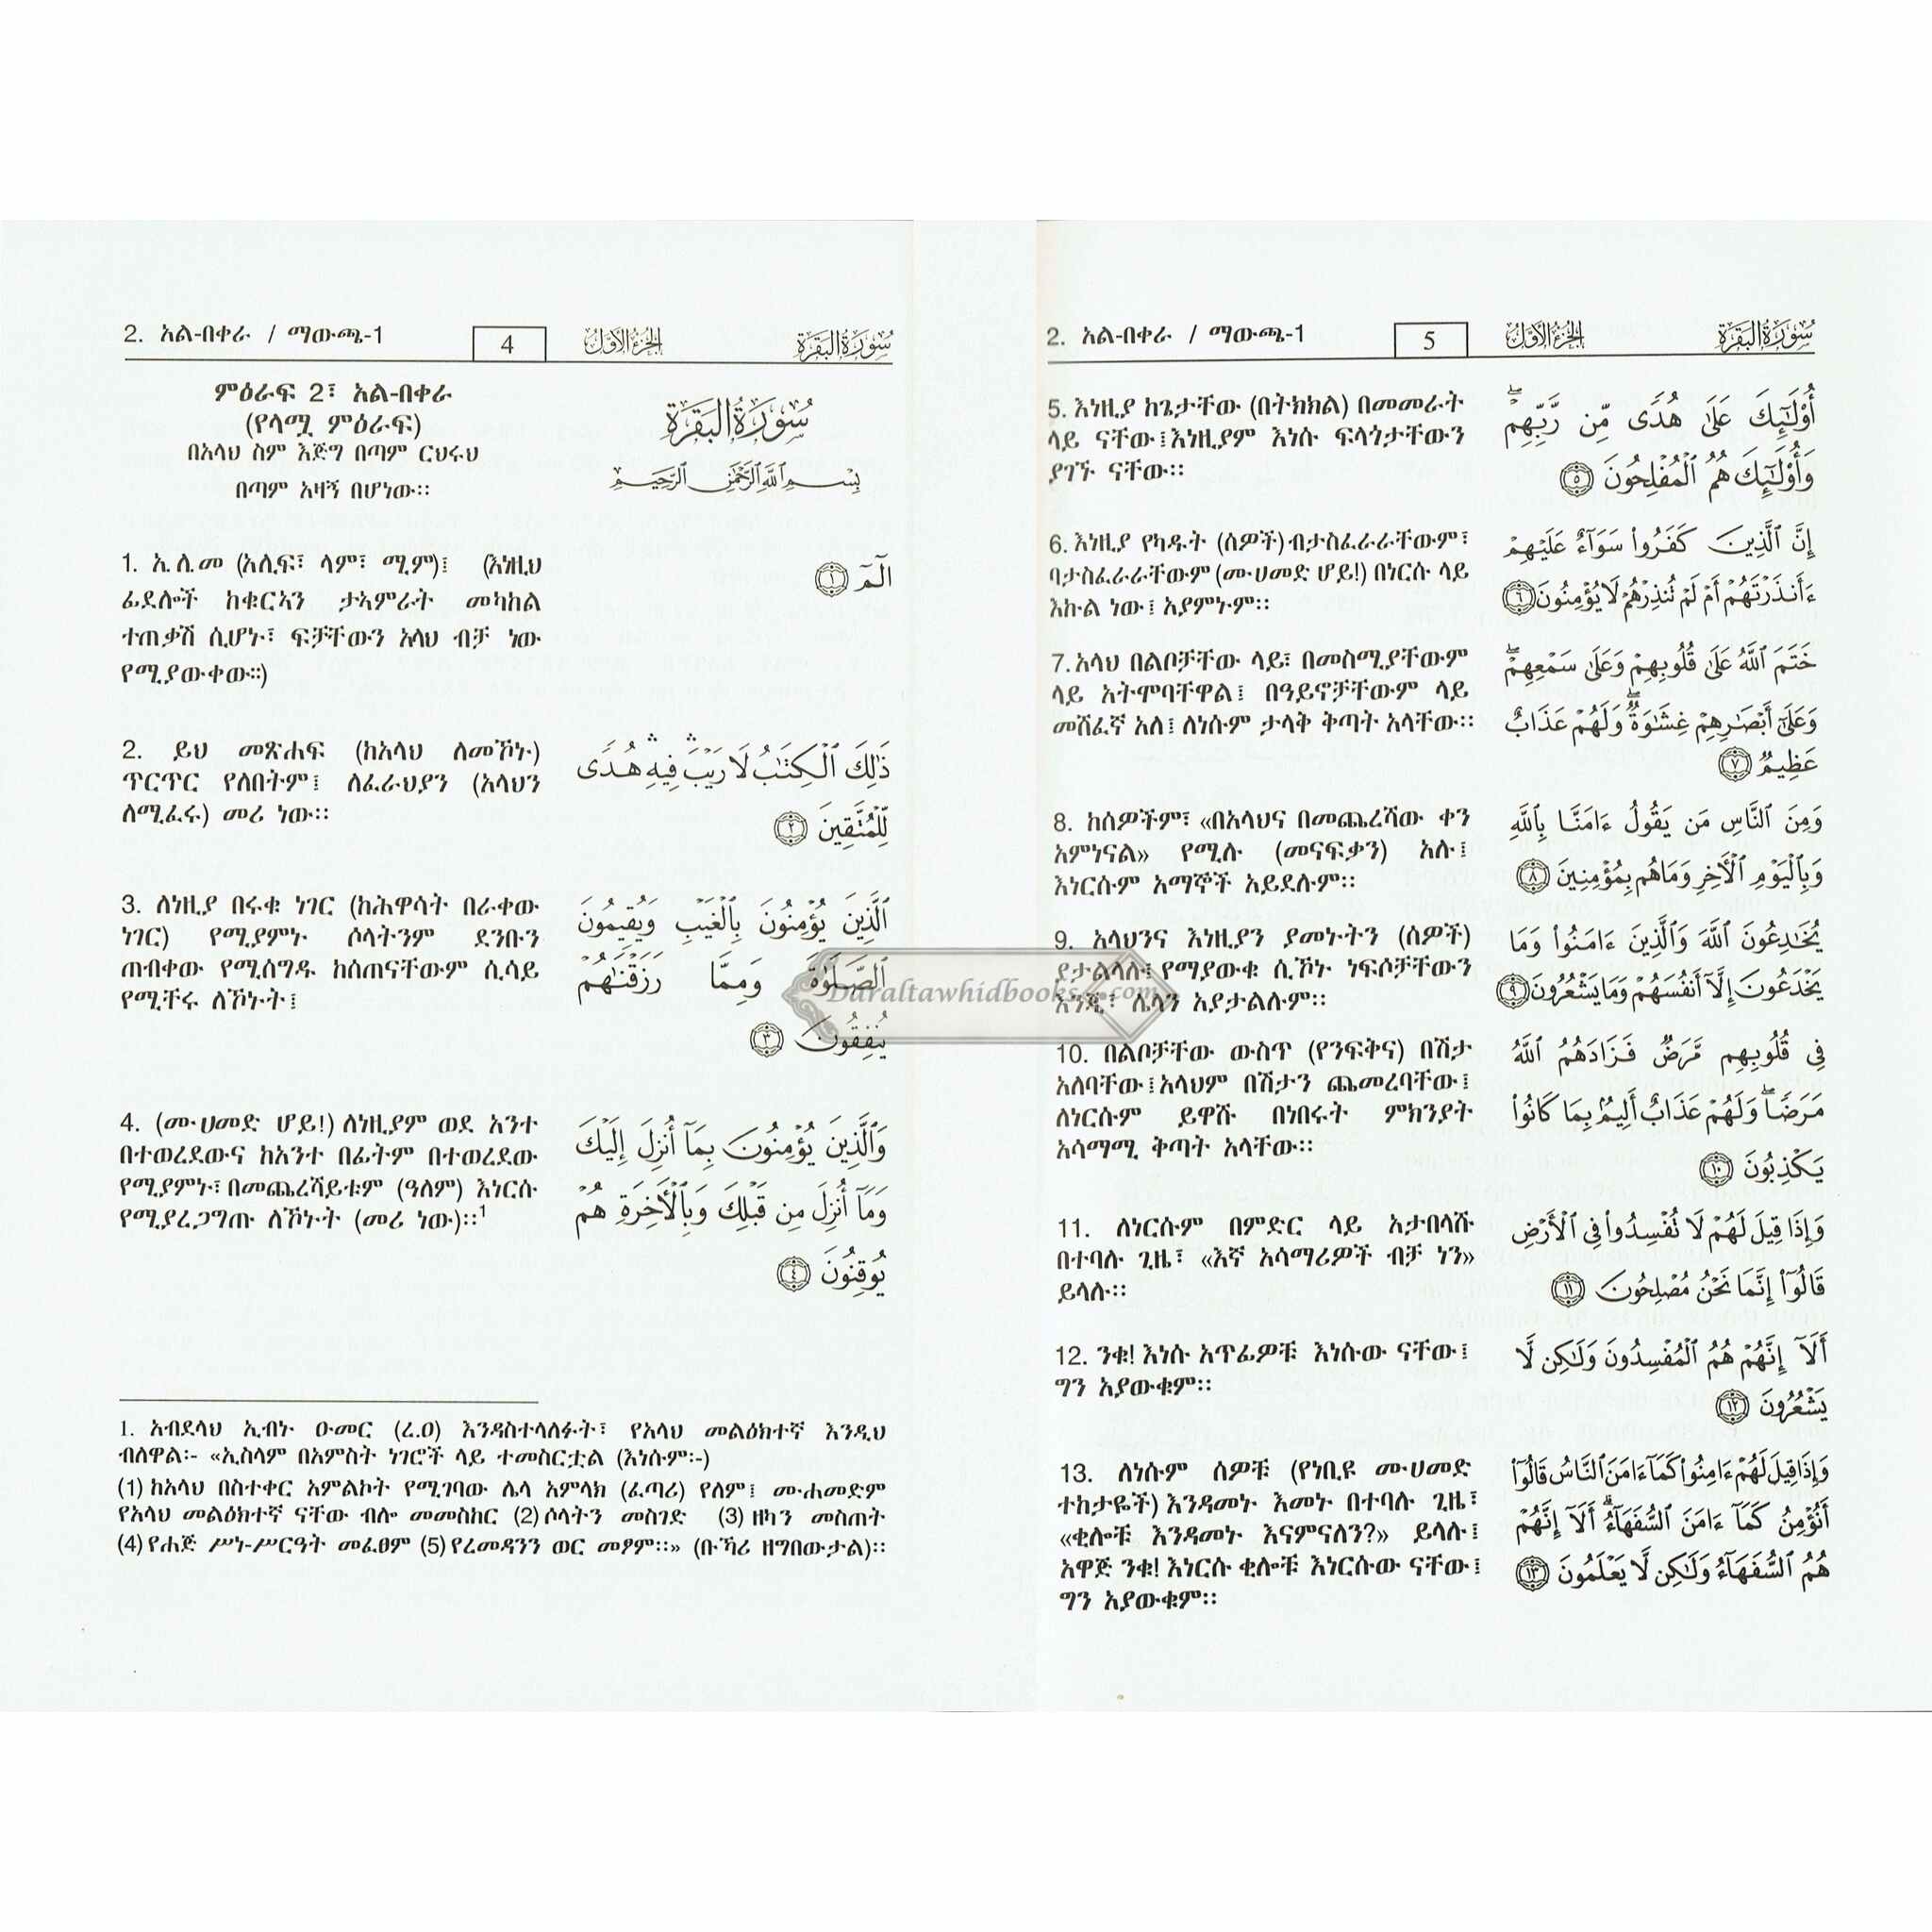 2. አል-በቀራ / ማውጫ-1
4
الجزء الأول
سورة البقرة
ምዕራፍ 2፣ አል-በቀራ
(የላሟ ምዕራፍ)
በአላህ ስም እጅግ በጣም ርህሩህ
በጣም አዛኝ በሆነው፡፡
سُورَةُ الْبَقَرَةِ
بِسْمِ ٱللَّهِ ٱلرَّحْمَٰنِ ٱلرَّحِيمِ
1. አ.ለ.መ (አሊፍ፣ ላም፣ ሚም)፤ (እነዚህ
ፊደሎች ከቁርኣን ታኣምራት መካከል
ተጠቃሽ ሲሆኑ፣ ፍቻቸውን አላህ ብቻ ነው
የሚያውቀው፡፡)
الٓمٓ ١
2. ይህ መጽሐፍ (ከአላህ ለመኾኑ)
ጥርጥር የለበትም፤ ለፈራህያን (አላህን
ለሚፈሩ) መሪ ነው፡፡
ذَٰلِكَ ٱلْكِتَٰبُ لَا رَيْبَ ۛ فِيهِ ۛ هُدًى
لِّلْمُتَّقِينَ ٢
3. ለነዚያ በሩቁ ነገር (ከሕዋሳት በራቀው
ነገር) የሚያምኑ ሶላትንም ደንቡን
ጠብቀው የሚሰግዱ ከሰጠናቸውም ሲሳይ
የሚቸሩ ለኾኑት፤
ٱلَّذِينَ يُؤْمِنُونَ بِٱلْغَيْبِ وَيُقِيمُونَ
ٱلصَّلَوٰةَ وَمِمَّا رَزَقْنَٰهُمْ
يُنفِقُونَ ٣
4. (ሙሀመድ ሆይ!) ለነዚያም ወደ አንተ
በተወረደውና ከአንተ በፊትም በተወረደው
የሚያምኑ፣ በመጨረሻይቱም (ዓለም) እነርሱ
የሚያረጋግጡ ለኾኑት (መሪ ነው)፡፡1
وَٱلَّذِينَ يُؤْمِنُونَ بِمَآ أُنزِلَ إِلَيْكَ
وَمَآ أُنزِلَ مِن قَبْلِكَ وَبِٱلْءَاخِرَةِ هُمْ
يُوقِنُونَ ٤
1. አብደላህ ኢብኑ ዑመር (ረ.ዐ) እንዳስተላለፉት፣ የአላህ መልዕክተኛ እንዲህ
ብለዋል፡- «ኢስላም በአምስት ነገሮች ላይ ተመስርቷል (እነሱም፡-)
(1) ከአላህ በስተቀር አምልኮት የሚገባው ሌላ አምላክ (ፈጣሪ) የለም፤ ሙሐመድም
የአላህ መልዕክተኛ ናቸው ብሎ መመስከር (2) ሶላትን መስገድ (3) ዘካን መስጠት
(4) የሐጅ ሥነ-ሥርዓት መፈፀም (5) የረመዳንን ወር መፆም፡፡» (ቡኻሪ ዘግበውታል)፡፡
Daraltawhidbooks.com
2. አል-በቀራ / ማውጫ-1
5
الجزء الأول
سورة البقرة
5. እነዚያ ከጌታቸው (በትክክል) በመመራት
ላይ ናቸው፤ እነዚያም እነሱ ፍላጎታቸውን
ያገኙ ናቸው፡፡
أُو۟لَٰٓئِكَ عَلَىٰ هُدًى مِّن رَّبِّهِمْ ۖ
وَأُو۟لَٰٓئِكَ هُمُ ٱلْمُفْلِحُونَ ٥
6. እነዚያ የካዱት (ሰዎች) ብታስፈራራቸውም፣
ባታስፈራራቸውም (ሙሀመድ ሆይ!) በነርሱ ላይ
እኩል ነው፤ አያምኑም፡፡
إِنَّ ٱلَّذِينَ كَفَرُوا۟ سَوَآءٌ عَلَيْهِمْ
ءَأَنذَرْتَهُمْ أَمْ لَمْ تُنذِرْهُمْ لَا يُؤْمِنُونَ ٦
7. አላህ በልቦቻቸው ላይ፣ በመስሚያቸውም
ላይ አትሞባቸዋል፤ በዓይኖቻቸውም ላይ
መሸፈኛ አለ፤ ለነሱም ታላቅ ቅጣት አላቸው፡፡
خَتَمَ ٱللَّهُ عَلَىٰ قُلُوبِهِمْ وَعَلَىٰ سَمْعِهِمْ ۖ
وَعَلَىٰٓ أَبْصَٰرِهِمْ غِشَٰوَةٌ ۖ وَلَهُمْ عَذَابٌ
عَظِيمٌ ٧
8. ከሰዎችም፣ «በአላህና በመጨረሻው ቀን
አምነናል» የሚሉ (መናፍቃን) አሉ፤
እነርሱም አማኞች አይደሉም፡፡
وَمِنَ ٱلنَّاسِ مَن يَقُولُ ءَامَنَّا بِٱللَّهِ
وَبِٱلْيَوْمِ ٱلْءَاخِرِ وَمَا هُم بِمُؤْمِنِينَ ٨
9. አላህንና እነዚያን ያመኑትን (ሰዎች)
ያታልላሉ፤ የማያውቁ ሲኾኑ ነፍሶቻቸውን
እንጂ፣ ሌላን አያታልሉም፡፡
يُخَٰدِعُونَ ٱللَّهَ وَٱلَّذِينَ ءَامَنُوا۟ وَمَا
يَخْدَعُونَ إِلَّآ أَنفُسَهُمْ وَمَا يَشْعُرُونَ ٩
10. በልቦቻቸው ውስጥ (የንፍቅና) በሽታ
አለባቸው፤ አላህም በሽታን ጨመረባቸው፤
ለነርሱም ይዋሹ በነበሩት ምክንያት
አሳማሚ ቅጣት አላቸው፡፡
فِى قُلُوبِهِم مَّرَضٌ فَزَادَهُمُ ٱللَّهُ
مَرَضًا ۖ وَلَهُمْ عَذَابٌ أَلِيمٌۢ بِمَا كَانُوا۟
يَكْذِبُونَ ١٠
11. ለነርሱም በምድር ላይ አታበላሹ
በተባሉ ጊዜ፣ «እኛ አሳማሪዎች ብቻ ነን»
ይላሉ፡፡
وَإِذَا قِيلَ لَهُمْ لَا تُفْسِدُوا۟ فِى ٱلْأَرْضِ
قَالُوٓا۟ إِنَّمَا نَحْنُ مُصْلِحُونَ ١١
12. ንቁ! እነሱ አጥፊዎቹ እነሱው ናቸው፤
ግን አያውቁም፡፡
أَلَآ إِنَّهُمْ هُمُ ٱلْمُفْسِدُونَ وَلَٰكِن لَّا
يَشْعُرُونَ ١٢
13. ለነሱም ሰዎቹ (የነቢዩ ሙሀመድ
ተከታዬች) እንዳመኑ እመኑ በተባሉ ጊዜ፣
«ቂሎቹ እንዳመኑ እናምናለን?» ይላሉ፤
አዋጅ ንቁ! እነርሱ ቂሎቹ እነርሱው ናቸው፤
ግን አያውቁም፡፡
وَإِذَا قِيلَ لَهُمْ ءَامِنُوا۟ كَمَآ ءَامَنَ ٱلنَّاسُ قَالُوٓا۟
أَنُؤْمِنُ كَمَآ ءَامَنَ ٱلسُّفَهَآءُ ۗ أَلَآ إِنَّهُمْ
هُمُ ٱلسُّفَهَآءُ وَلَٰكِن لَّا يَعْلَمُونَ ١٣